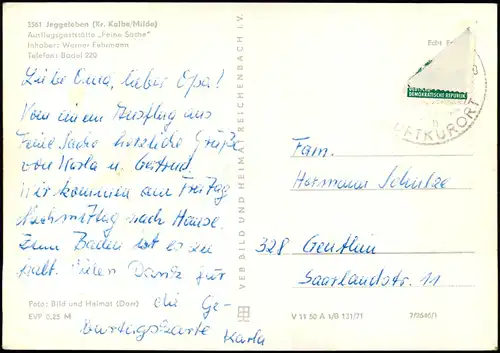 3561 Jeggeleben (Kr. Kalbe/Milde)
Ausflugsgaststätte „Feine Sache"
Inhaber: Werner Fehrmann
Telefon: Badel 220
Liebe Oma, lieber Opa!
Von einem Ausflug aus
Feine Sache herzliche Grüße
von Karla u. Gertrud.
Wir kommen am Freitag
Nachmittag nach Hause.
Zum Baden ist es zu
kalt. Vielen Dank für
die Ge-
burtagskarte Karla
Foto: Bild und Heimat (Dom)
EVP 0,25 M
VEB BILD UND HEIMAT REICHENBACH i. V.
Echt
DEMOKRATISCHE REPUBLIK
LUFTKURORT
Fam.
Hermann Schulze
328 Genthin
Saarlandstr. 11
V 11 50 A 1/B 131/71
7/2646/1